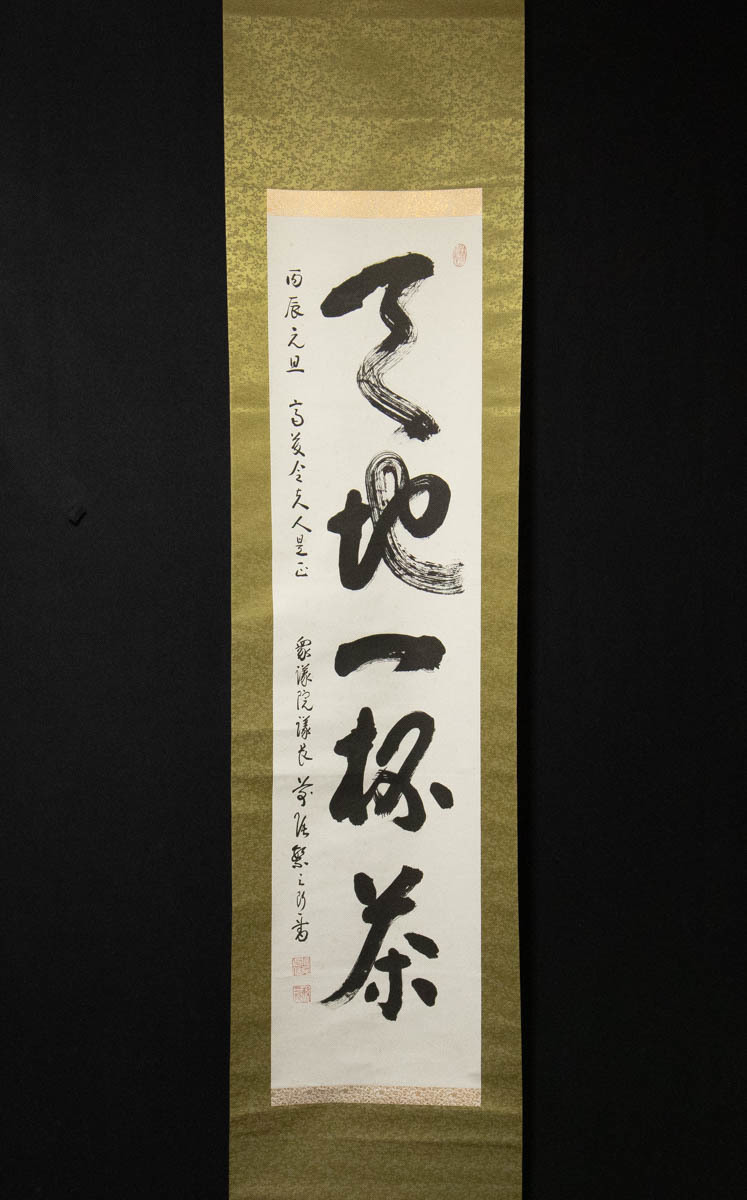 天地一杯茶
丙辰元旦 高美令夫人是正 衆議院議長 前尾繁三郎書